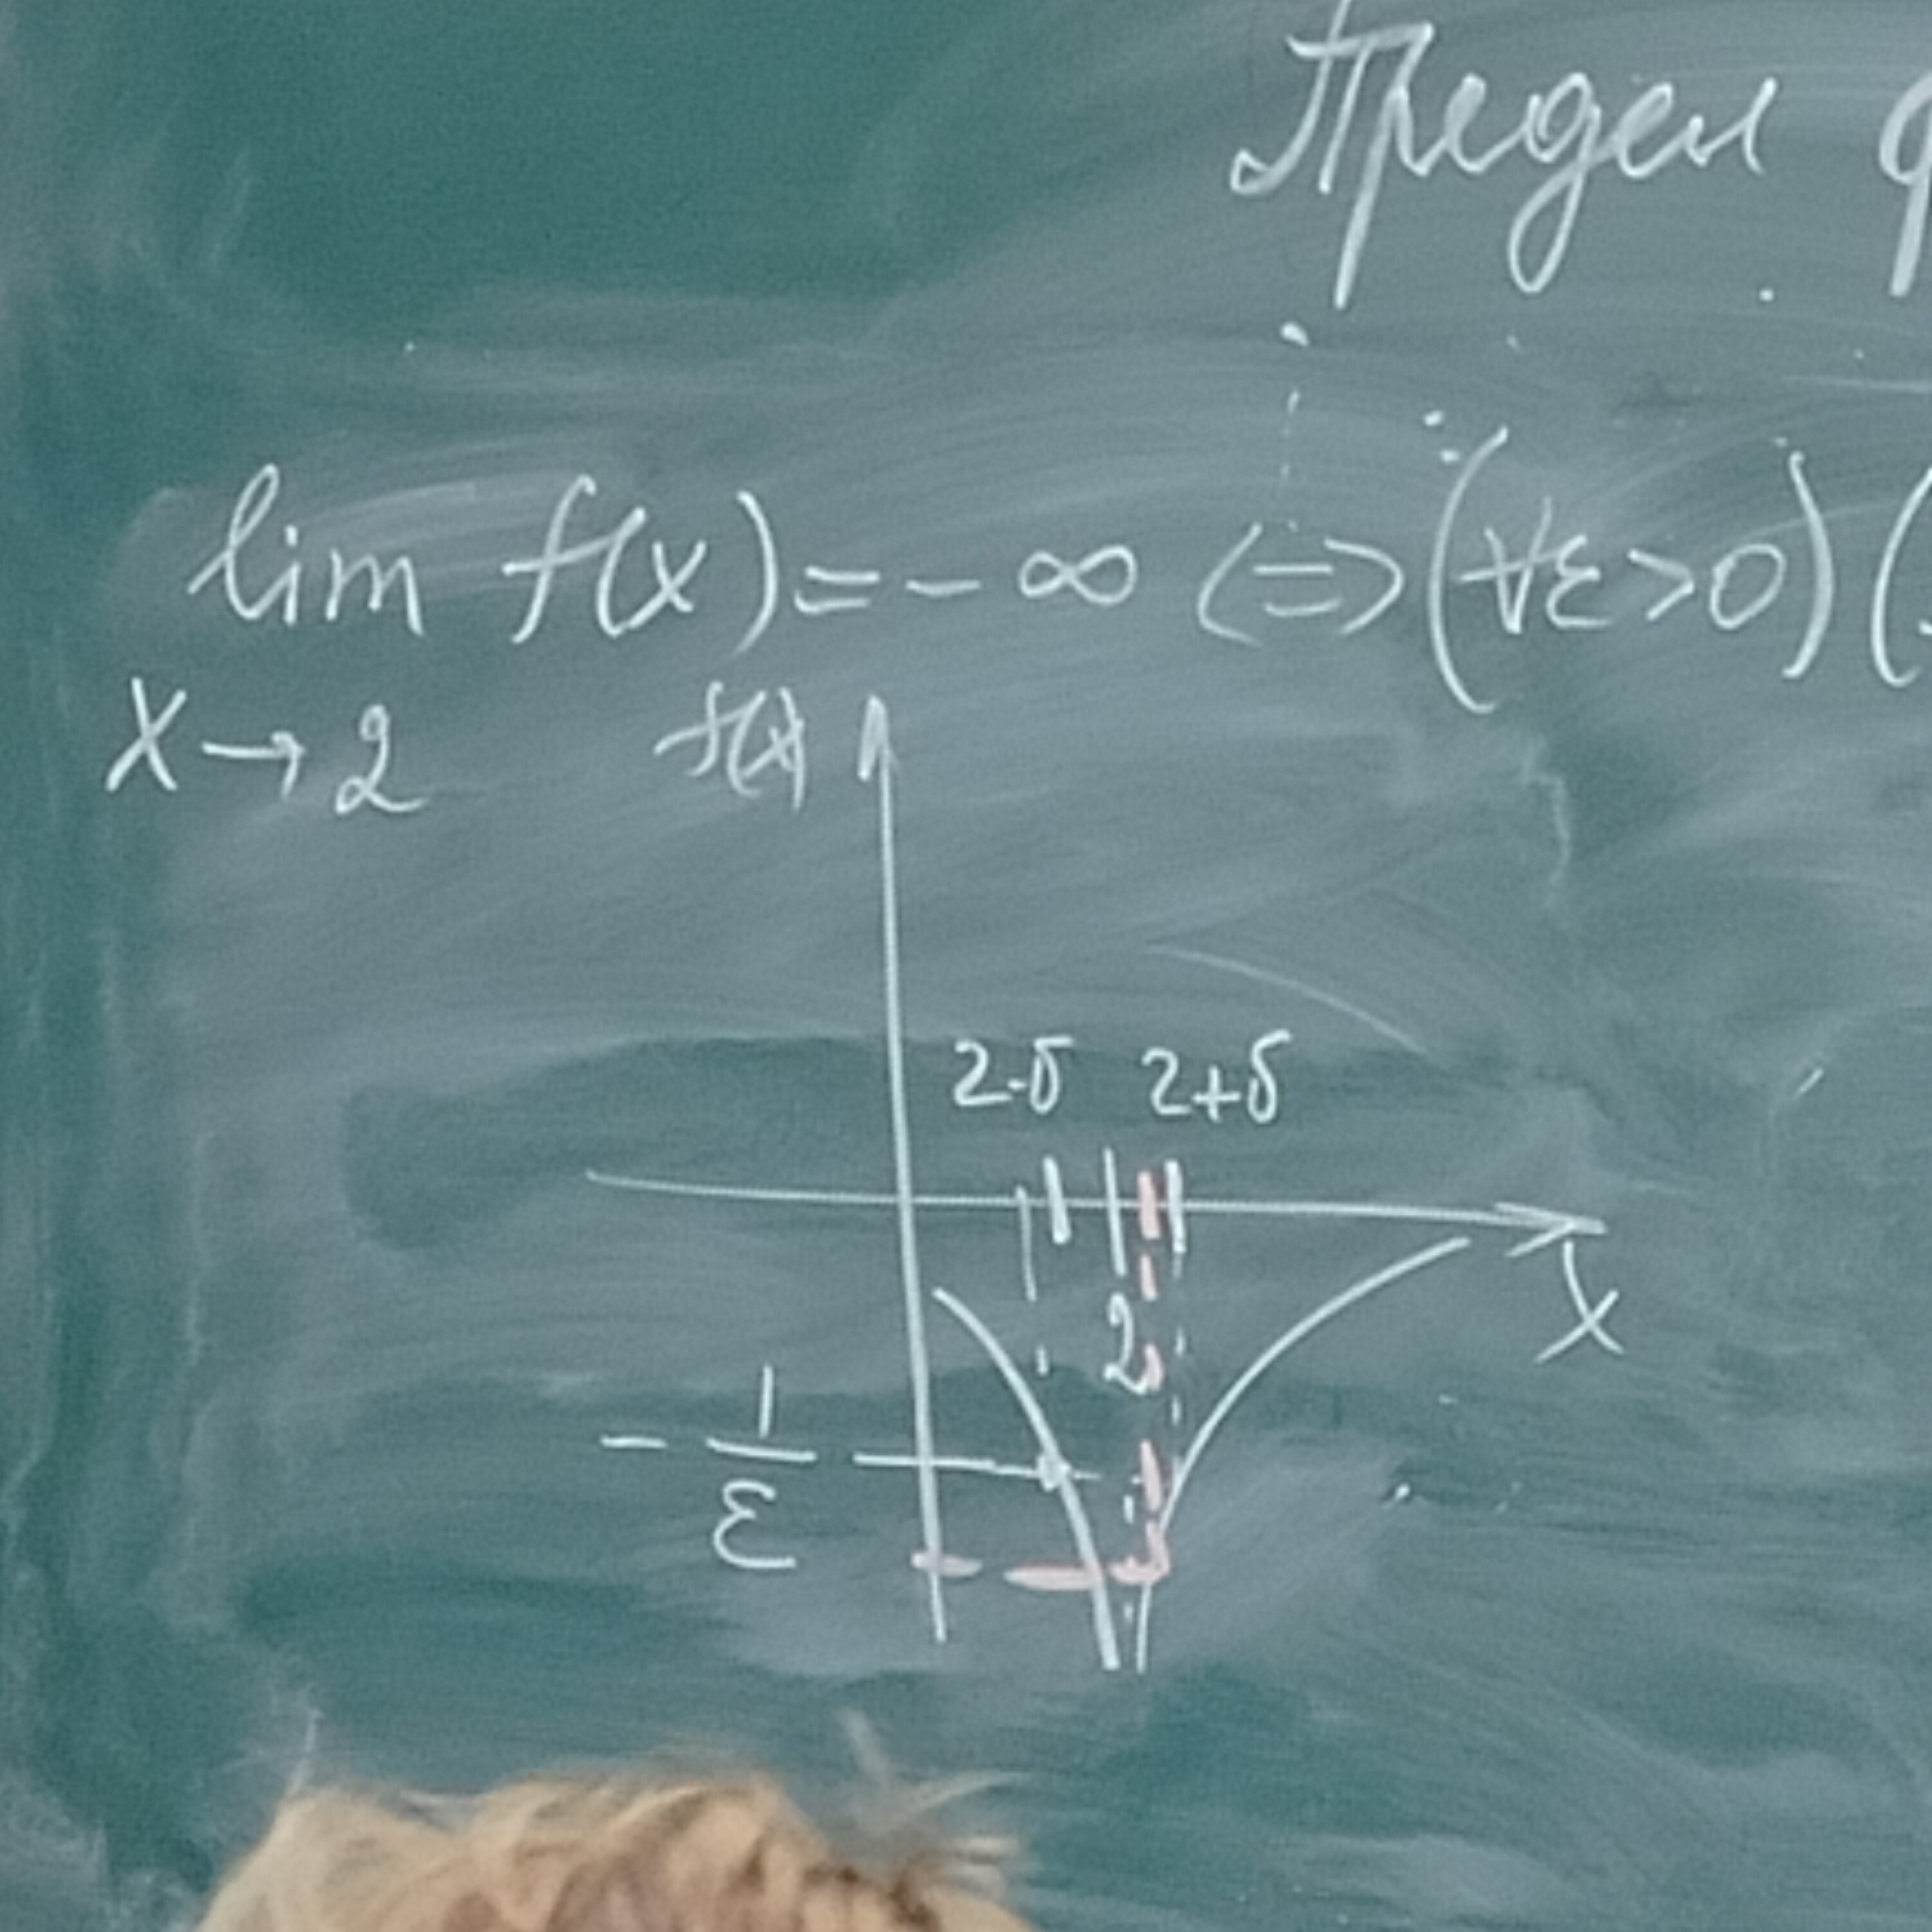 Предел
lim f(x) = - ∞ <=> (∀ε>0) (
x→2
f(x)
2-δ 2+δ
2
x
- 1/ε